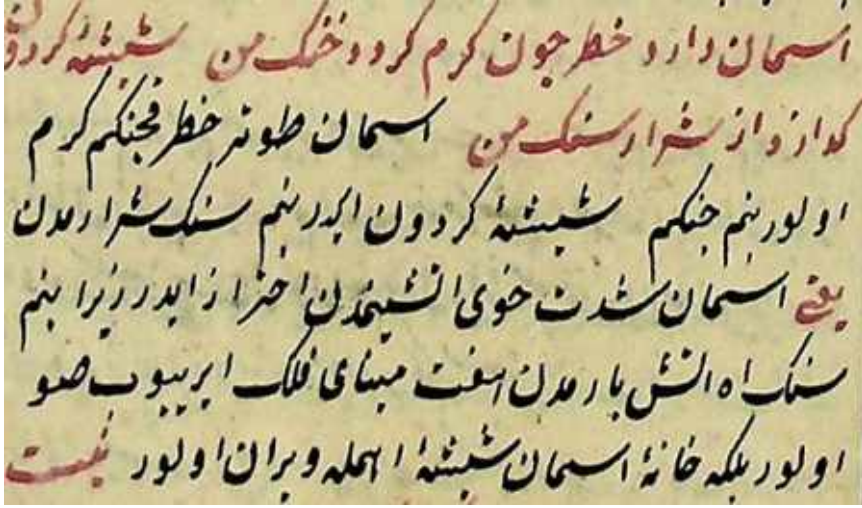 اسمان دارد خطر چون کرم کردد خنک من شیشهٔ کردون
کدازد از شرار سنک من اسمان طوتر خطر فجنکم کرم
اولور بنم جنکم شیشهٔ کردون ایدر بنم سنک شرارمدن
یعنی اسمان شدت خوی اتشینمدن احتراز ایدر زیرا بنم
سنک اه اتش بارمدن هفت مینای فلک اریيوب صو
اولور بلکه خانهٔ اسمان شیشهٔ اهمله ویران اولور نیست